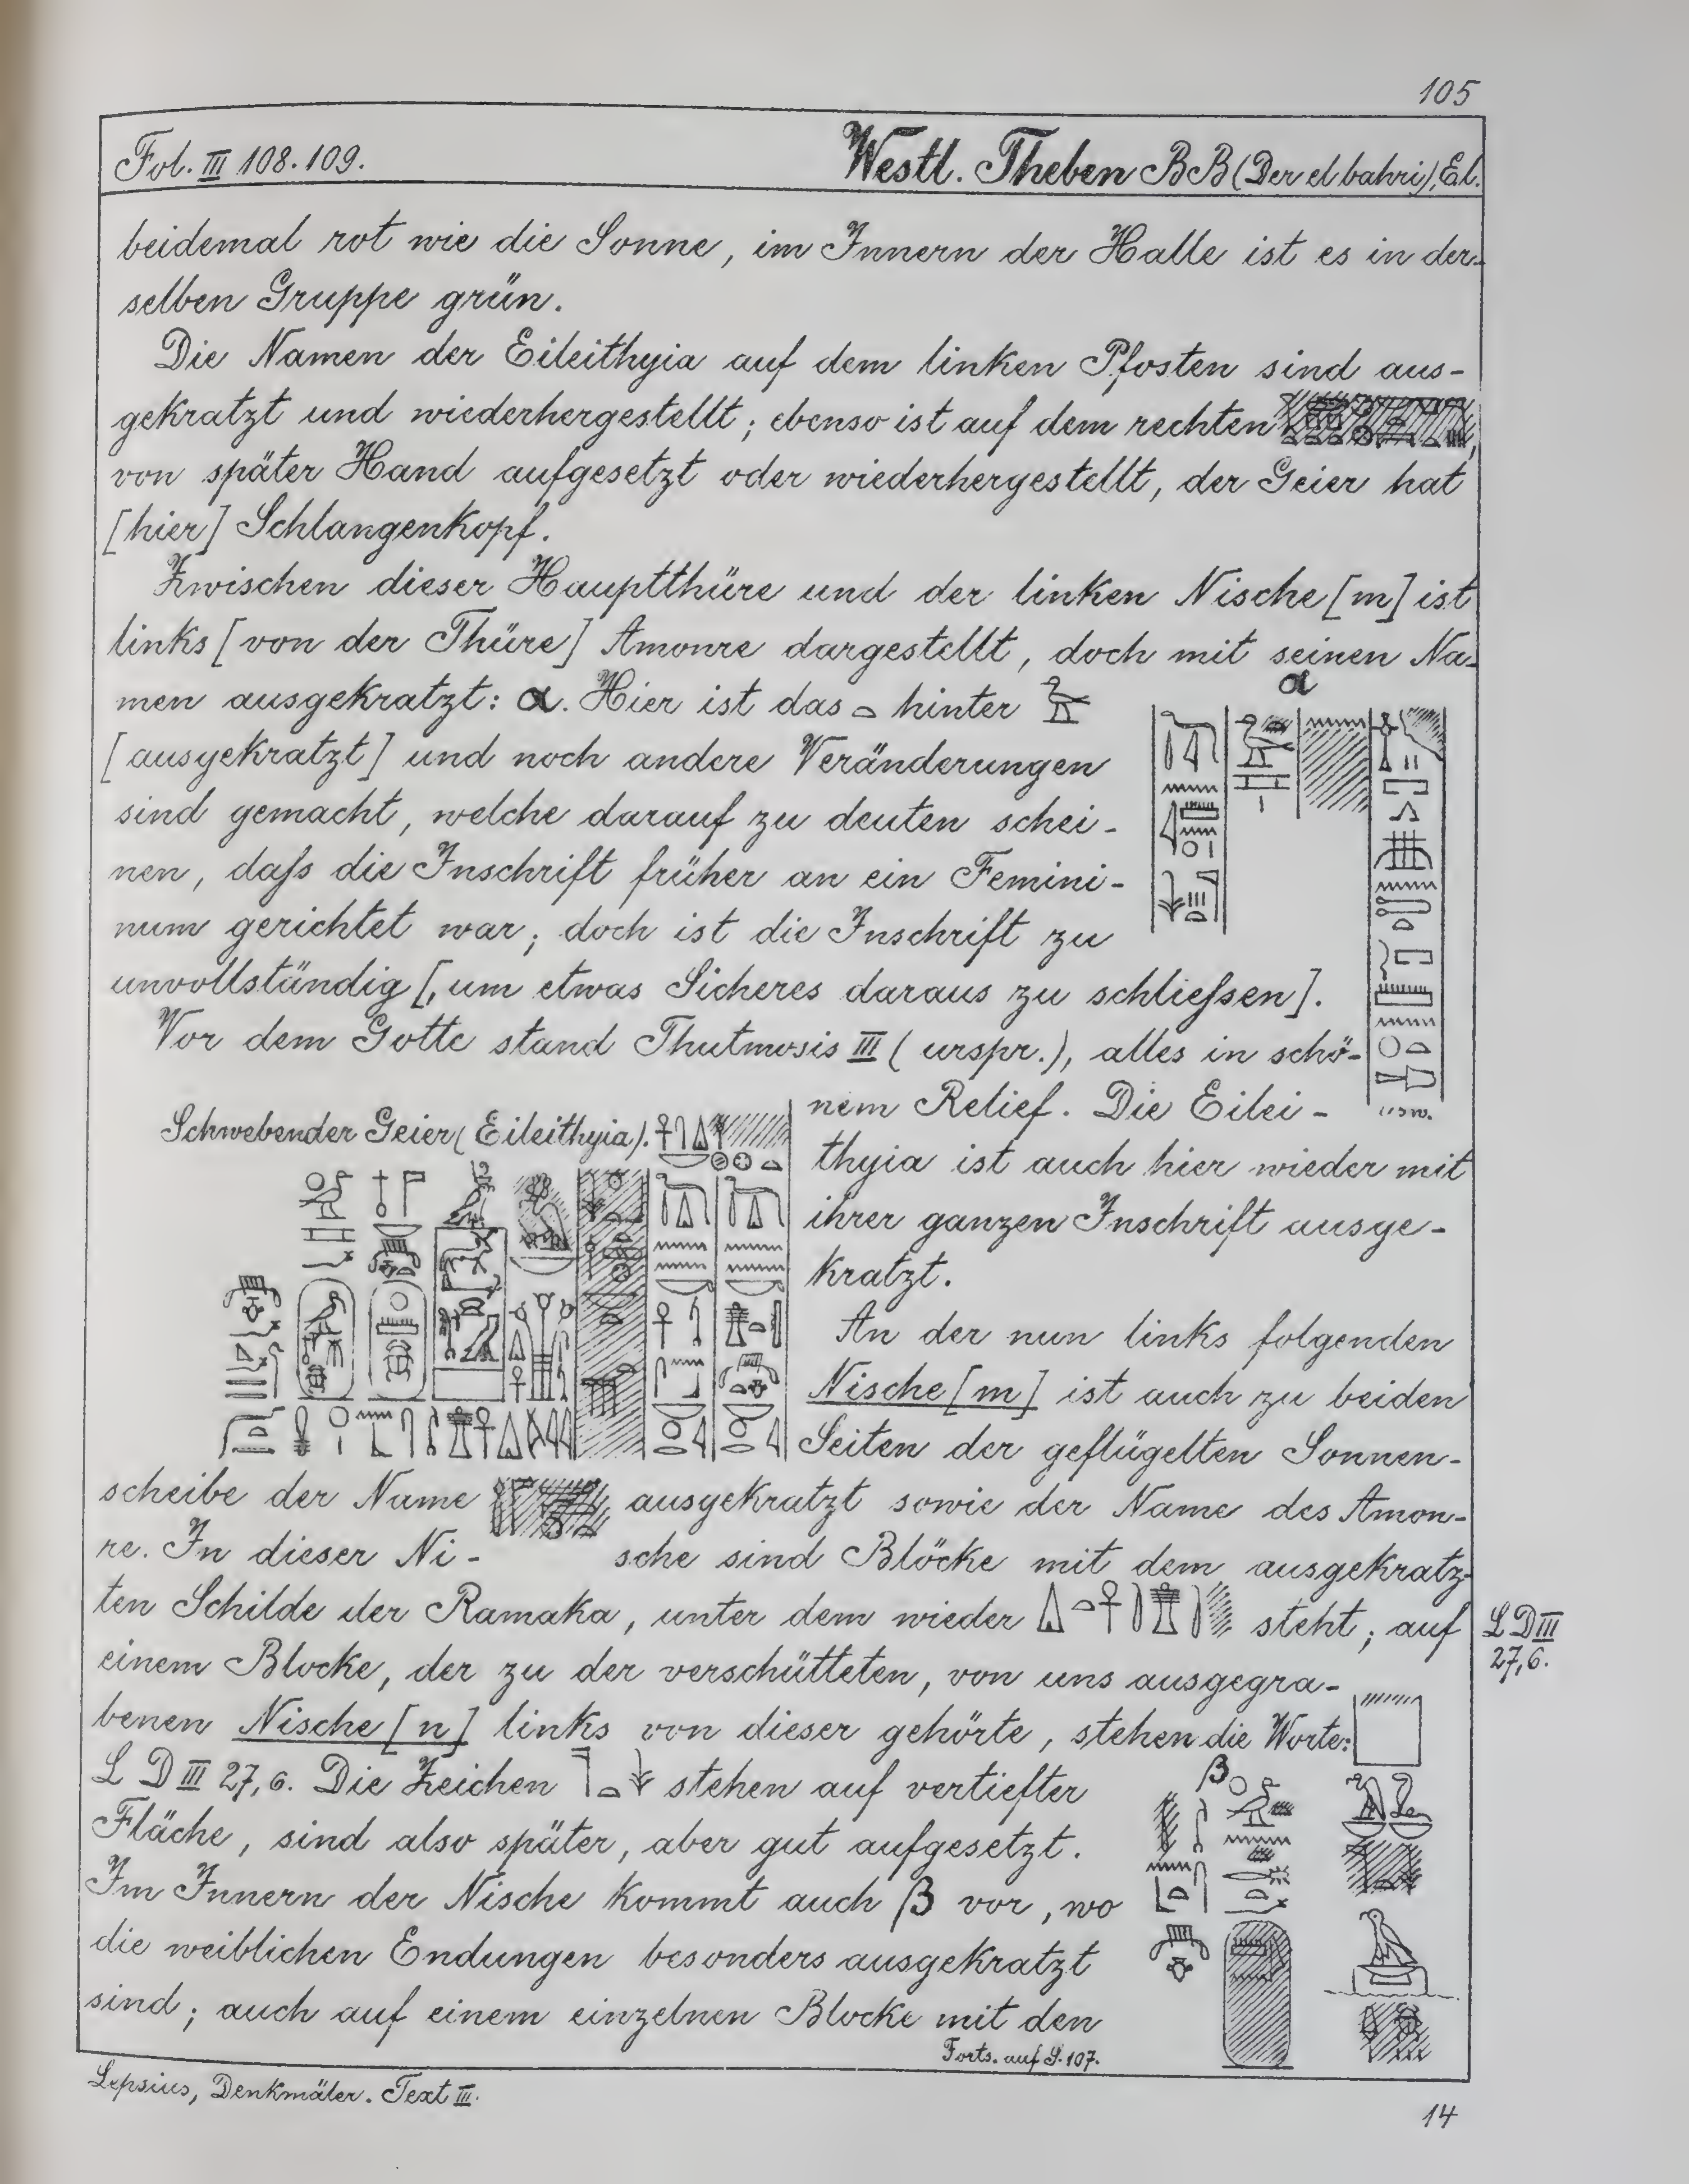 105
Fol. III 108. 109.
Westl. Theben BB (Der el bahri), El.
beidemal rot wie die Sonne, im Innern der Halle ist es in der-
selben Gruppe grün.
Die Namen der Eileithyia auf dem linken Pfosten sind aus-
gekratzt und wiederhergestellt; ebenso ist auf dem rechten
von später Hand aufgesetzt oder wiederhergestellt, der Geier hat
[hier] Schlangenkopf.
Zwischen dieser Hauptthüre und der linken Nische [m] ist
links [von der Thüre] Amonre dargestellt, doch mit seinen Na-
men ausgekratzt: α. Hier ist das 𓏏 hinter 𓅭
α
[ausgekratzt] und noch andere Veränderungen
sind gemacht, welche darauf zu deuten schei-
nen, daſs die Inschrift früher an ein Femini-
num gerichtet war; doch ist die Inschrift zu
unvollständig [, um etwas Sicheres daraus zu schlieſsen].
Vor dem Gotte stand Thutmosis III (urspr.), alles in schö-
usw.
nem Relief. Die Eilei-
Schwebender Geier (Eileithyia).
thyia ist auch hier wieder mit
ihrer ganzen Inschrift ausge-
kratzt.
An der nun links folgenden
Nische [m] ist auch zu beiden
Seiten der geflügelten Sonnen-
scheibe der Name ausgekratzt sowie der Name des Amon-
re. In dieser Ni- sche sind Blöcke mit dem ausgekratz-
ten Schilde der Ramaka, unter dem wieder steht; auf
L D III
27,6.
einem Blocke, der zu der verschütteten, von uns ausgegra-
benen Nische [n] links von dieser gehörte, stehen die Worte:
L D III 27,6. Die Zeichen 𓊹𓏏𓇓 stehen auf vertiefter
Fläche, sind also später, aber gut aufgesetzt.
β
Im Innern der Nische kommt auch β vor, wo
die weiblichen Endungen besonders ausgekratzt
sind; auch auf einem einzelnen Blocke mit den
Forts. auf S. 107.
Lepsius, Denkmäler. Text III.
14